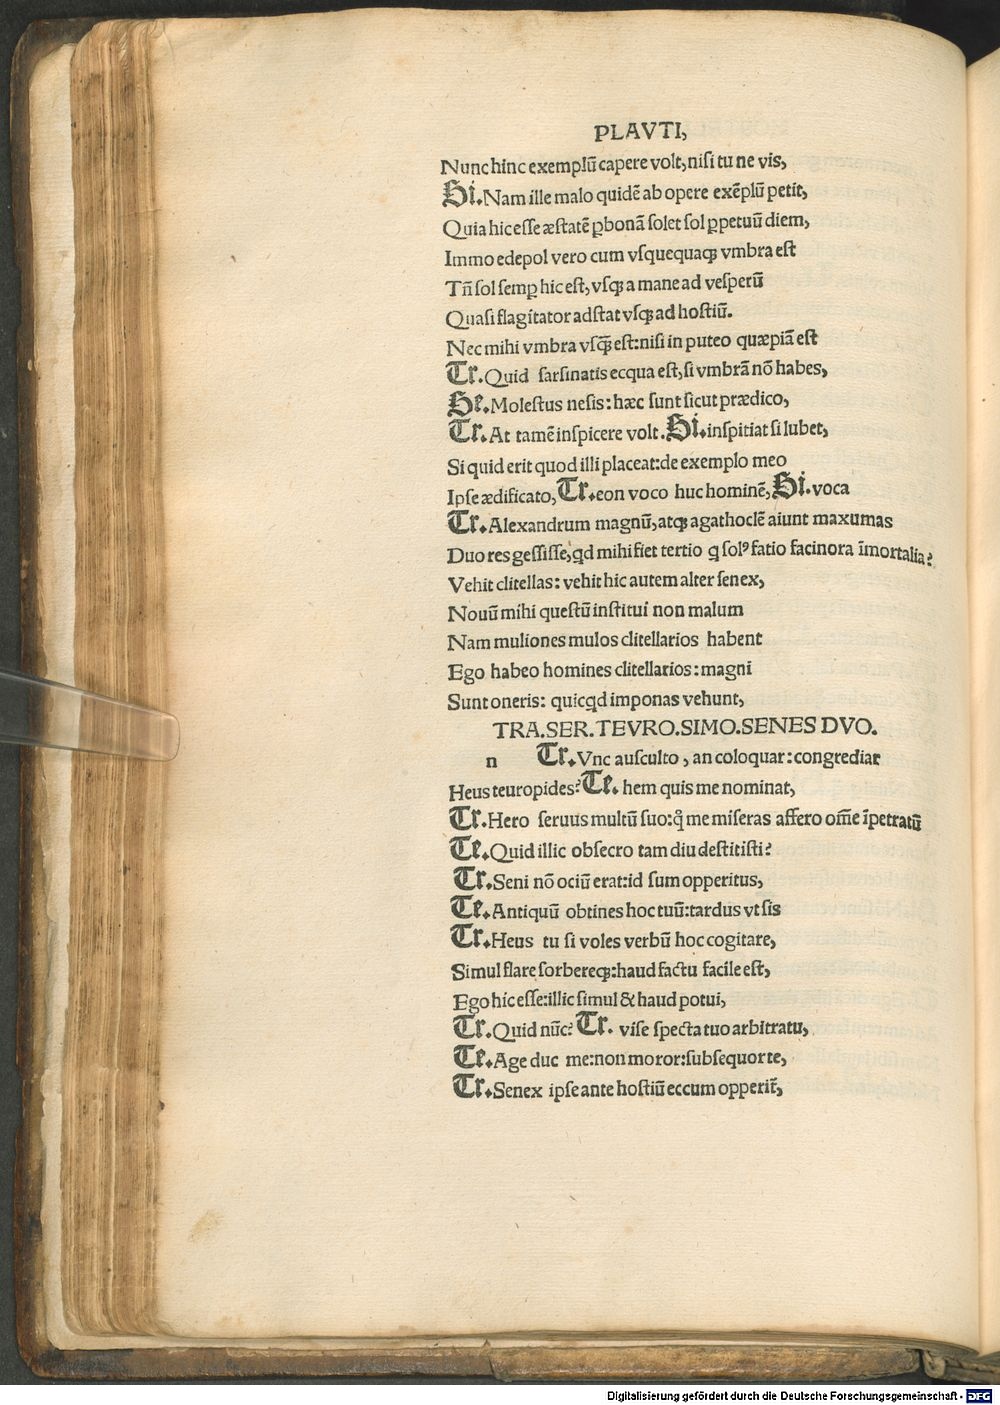 PLAVTI,
Nunc hinc exemplū capere volt, nisi tu ne vis,
Si. Nam ille malo quidē ab opere exēplū petit,
Quia hic esse æstatē ꝑbonā solet sol ꝑpetuū diem,
Immo edepol vero cum vsquequaqꝫ vmbra est
Tñ sol semꝑ hic est, vsqꝫ a mane ad vesperū
Quasi flagitator adstat vsqꝫ ad hostiū.
Nec mihi vmbra vsq̄ꝫ est: nisi in puteo quæpiā est
Tr. Quid sarsinatis ecqua est, si vmbrā nō habes,
Se. Molestus nesis: hæc sunt sicut prædico,
Tr. At tamē inspicere volt. Si. inspitiat si lubet,
Si quid erit quod illi placeat: de exemplo meo
Ipse ædificato, Tr. eon voco huc hominē, Si. voca
Tr. Alexandrum magnū, atqꝫ agathoclē aiunt maxumas
Duo res gessisse, qd mihi fiet tertio q solꝰ fatio facinora īmortalia?
Vehit clitellas: vehit hic autem alter senex,
Nouū mihi questū institui non malum
Nam muliones mulos clitellarios habent
Ego habeo homines clitellarios: magni
Sunt oneris: quicqd imponas vehunt,
TRA.SER.TEVRO.SIMO.SENES DVO.
n Tr. Vnc ausculto, an coloquar: congrediar
Heus teuropides? Te. hem quis me nominat,
Tr. Hero seruus multū suo: q̄ me miseras affero om̄e īpetratū
Te. Quid illic obsecro tam diu destitisti?
Tr. Seni nō ociū erat: id sum opperitus,
Te. Antiquū obtines hoc tuū: tardus vt sis
Tr. Heus tu si voles verbū hoc cogitare,
Simul flare sorbereqꝫ: haud factu facile est,
Ego hic esse: illic simul & haud potui,
Tr. Quid nūc? Tr. vise specta tuo arbitratu,
Te. Age duc me: non moror: subsequor te,
Tr. Senex ipse ante hostiū eccum opperit̄,
Digitalisierung gefördert durch die Deutsche Forschungsgemeinschaft - DFG